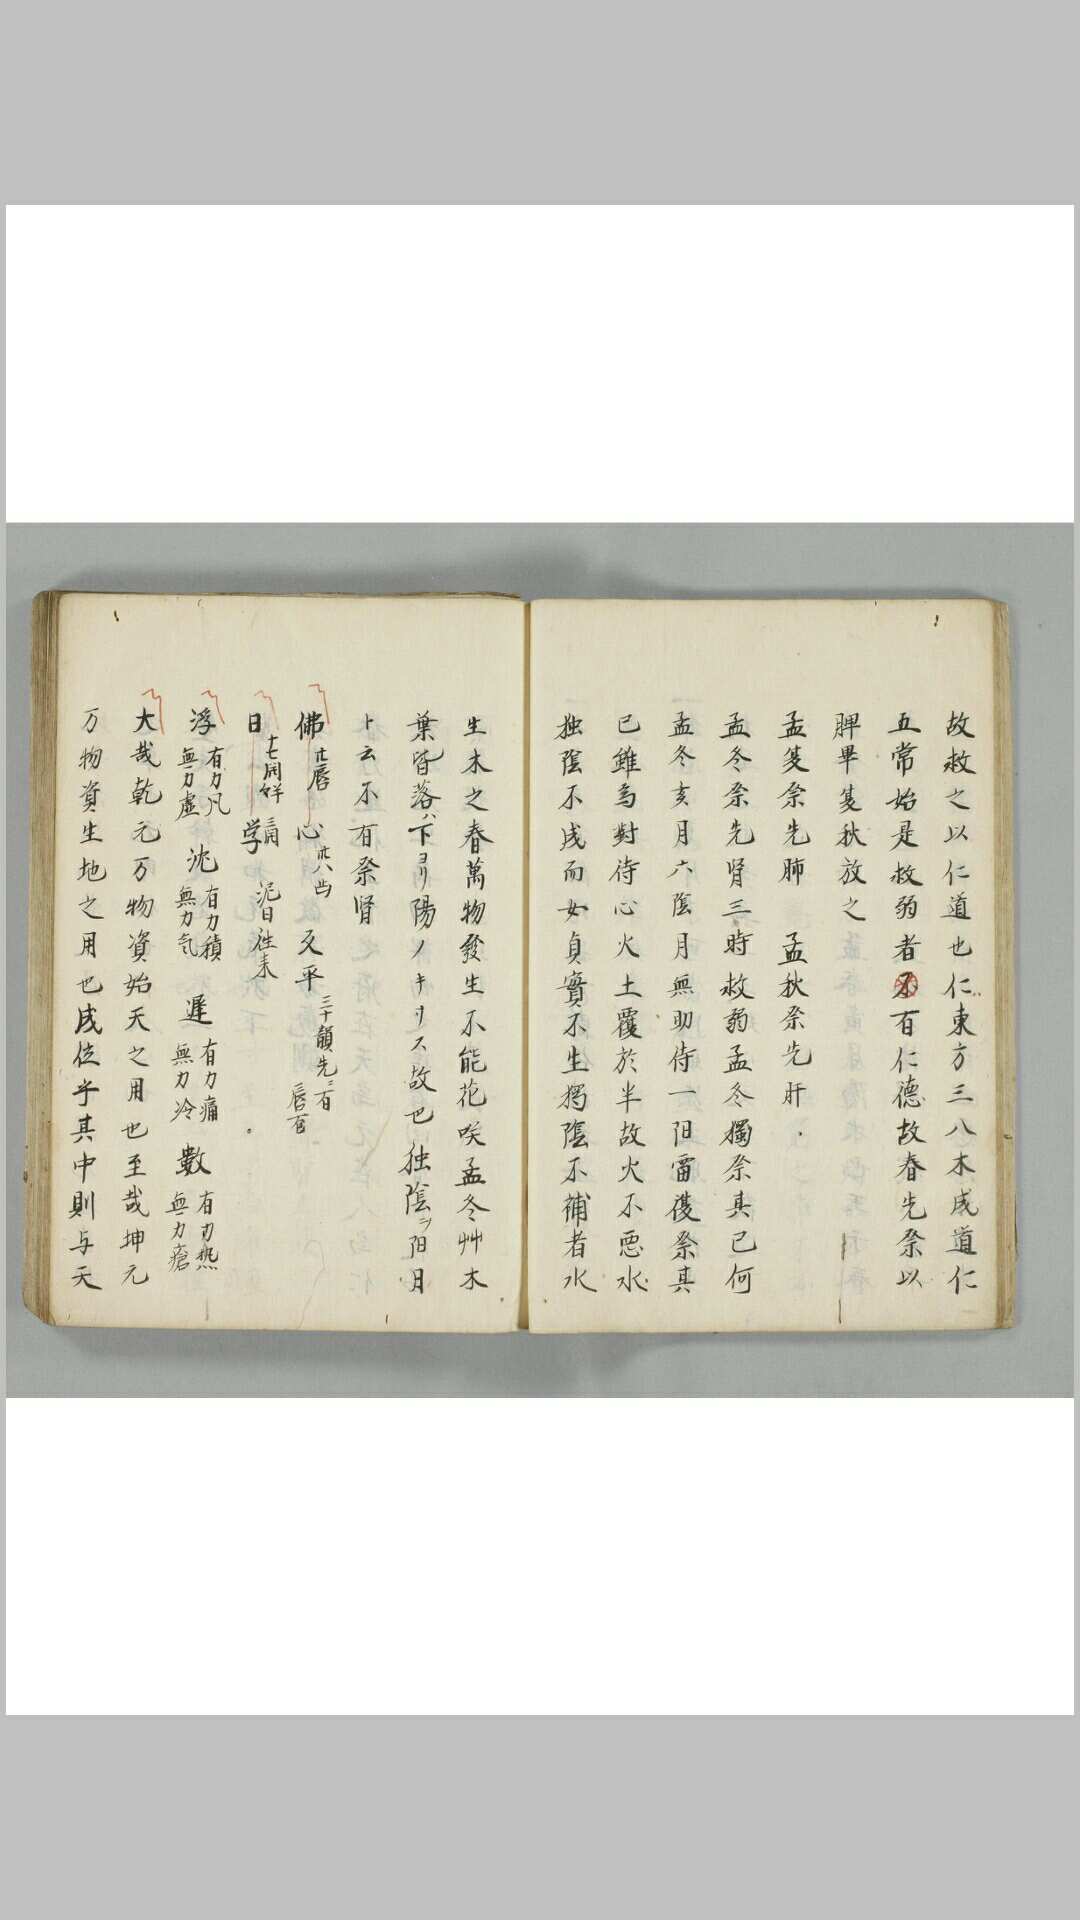 故救之以仁道也仁東方三八木成道仁
五常始是救弱者不有仁德故春先祭以
脾畢夏秋放之
孟夏祭先肺 孟秋祭先肝
孟冬祭先腎三時救弱孟冬獨祭其已何
孟冬亥月六陰月無助侍一阳雷復祭其
已雖為對待心火土覆於半故火不悪水
独陰不成而女貞實不生獨陰不補者水
生木之春萬物發生不能花咲孟冬艸木
葉皆落ハ下ヨリ陽ノキリス故也独陰ヲ阳月
ト云不有祭腎
佛 唇 心 齿 又平
日 学 泥日往来
浮 有力凡 無力虚 沈 有力積 無力気 遅 有力痛 無力冷 數 有力热 無力瘡
大哉乾元万物資始天之用也至哉坤元
万物資生地之用也成位乎其中則与天